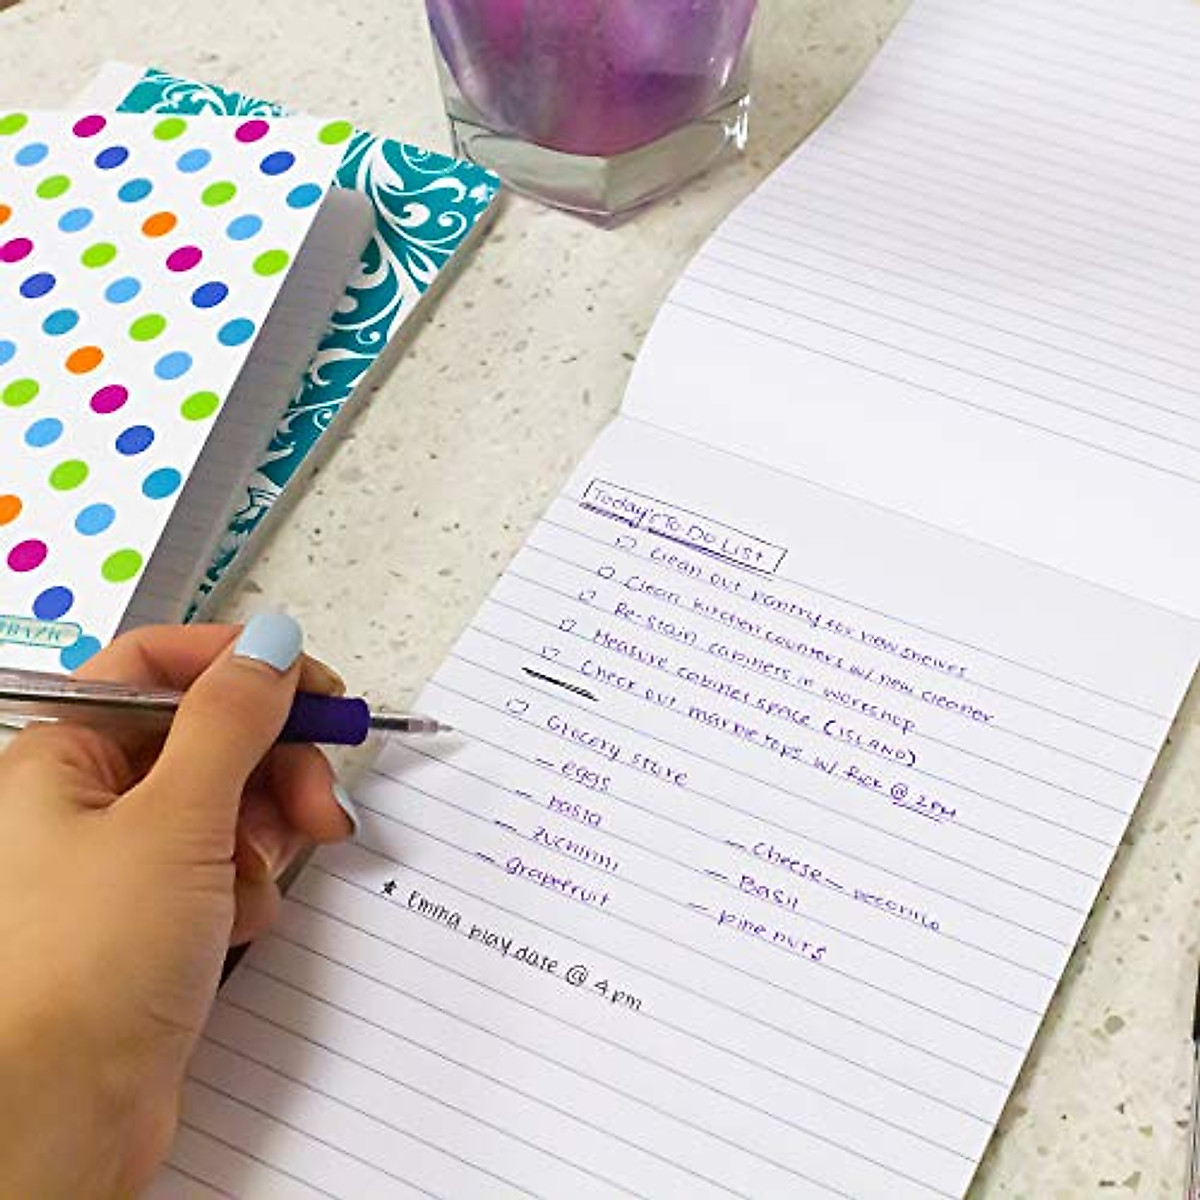 BAZIC
Today's To Do List
Clean out pantry for new shelves
Clean kitchen counters w/ new cleaner
Re-stain cabinets in workshop
Measure cabinet space (ISLAND)
Check out marble tops w/ Rick @ 2PM
Grocery store
— eggs
— pasta
— zuchinni
— grapefruit
— Cheese — pecorino
— Basil
— pine nuts
★ Emma play date @ 4 pm